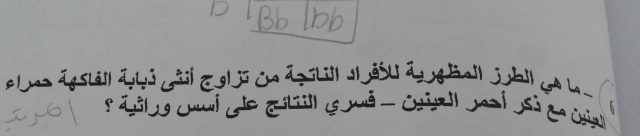 b
Bb bb
ـ ما هي الطرز المظهرية للأفراد الناتجة من تزاوج أنثى ذبابة الفاكهة حمراء
العينين مع ذكر أحمر العينين – فسري النتائج على أسس وراثية ؟